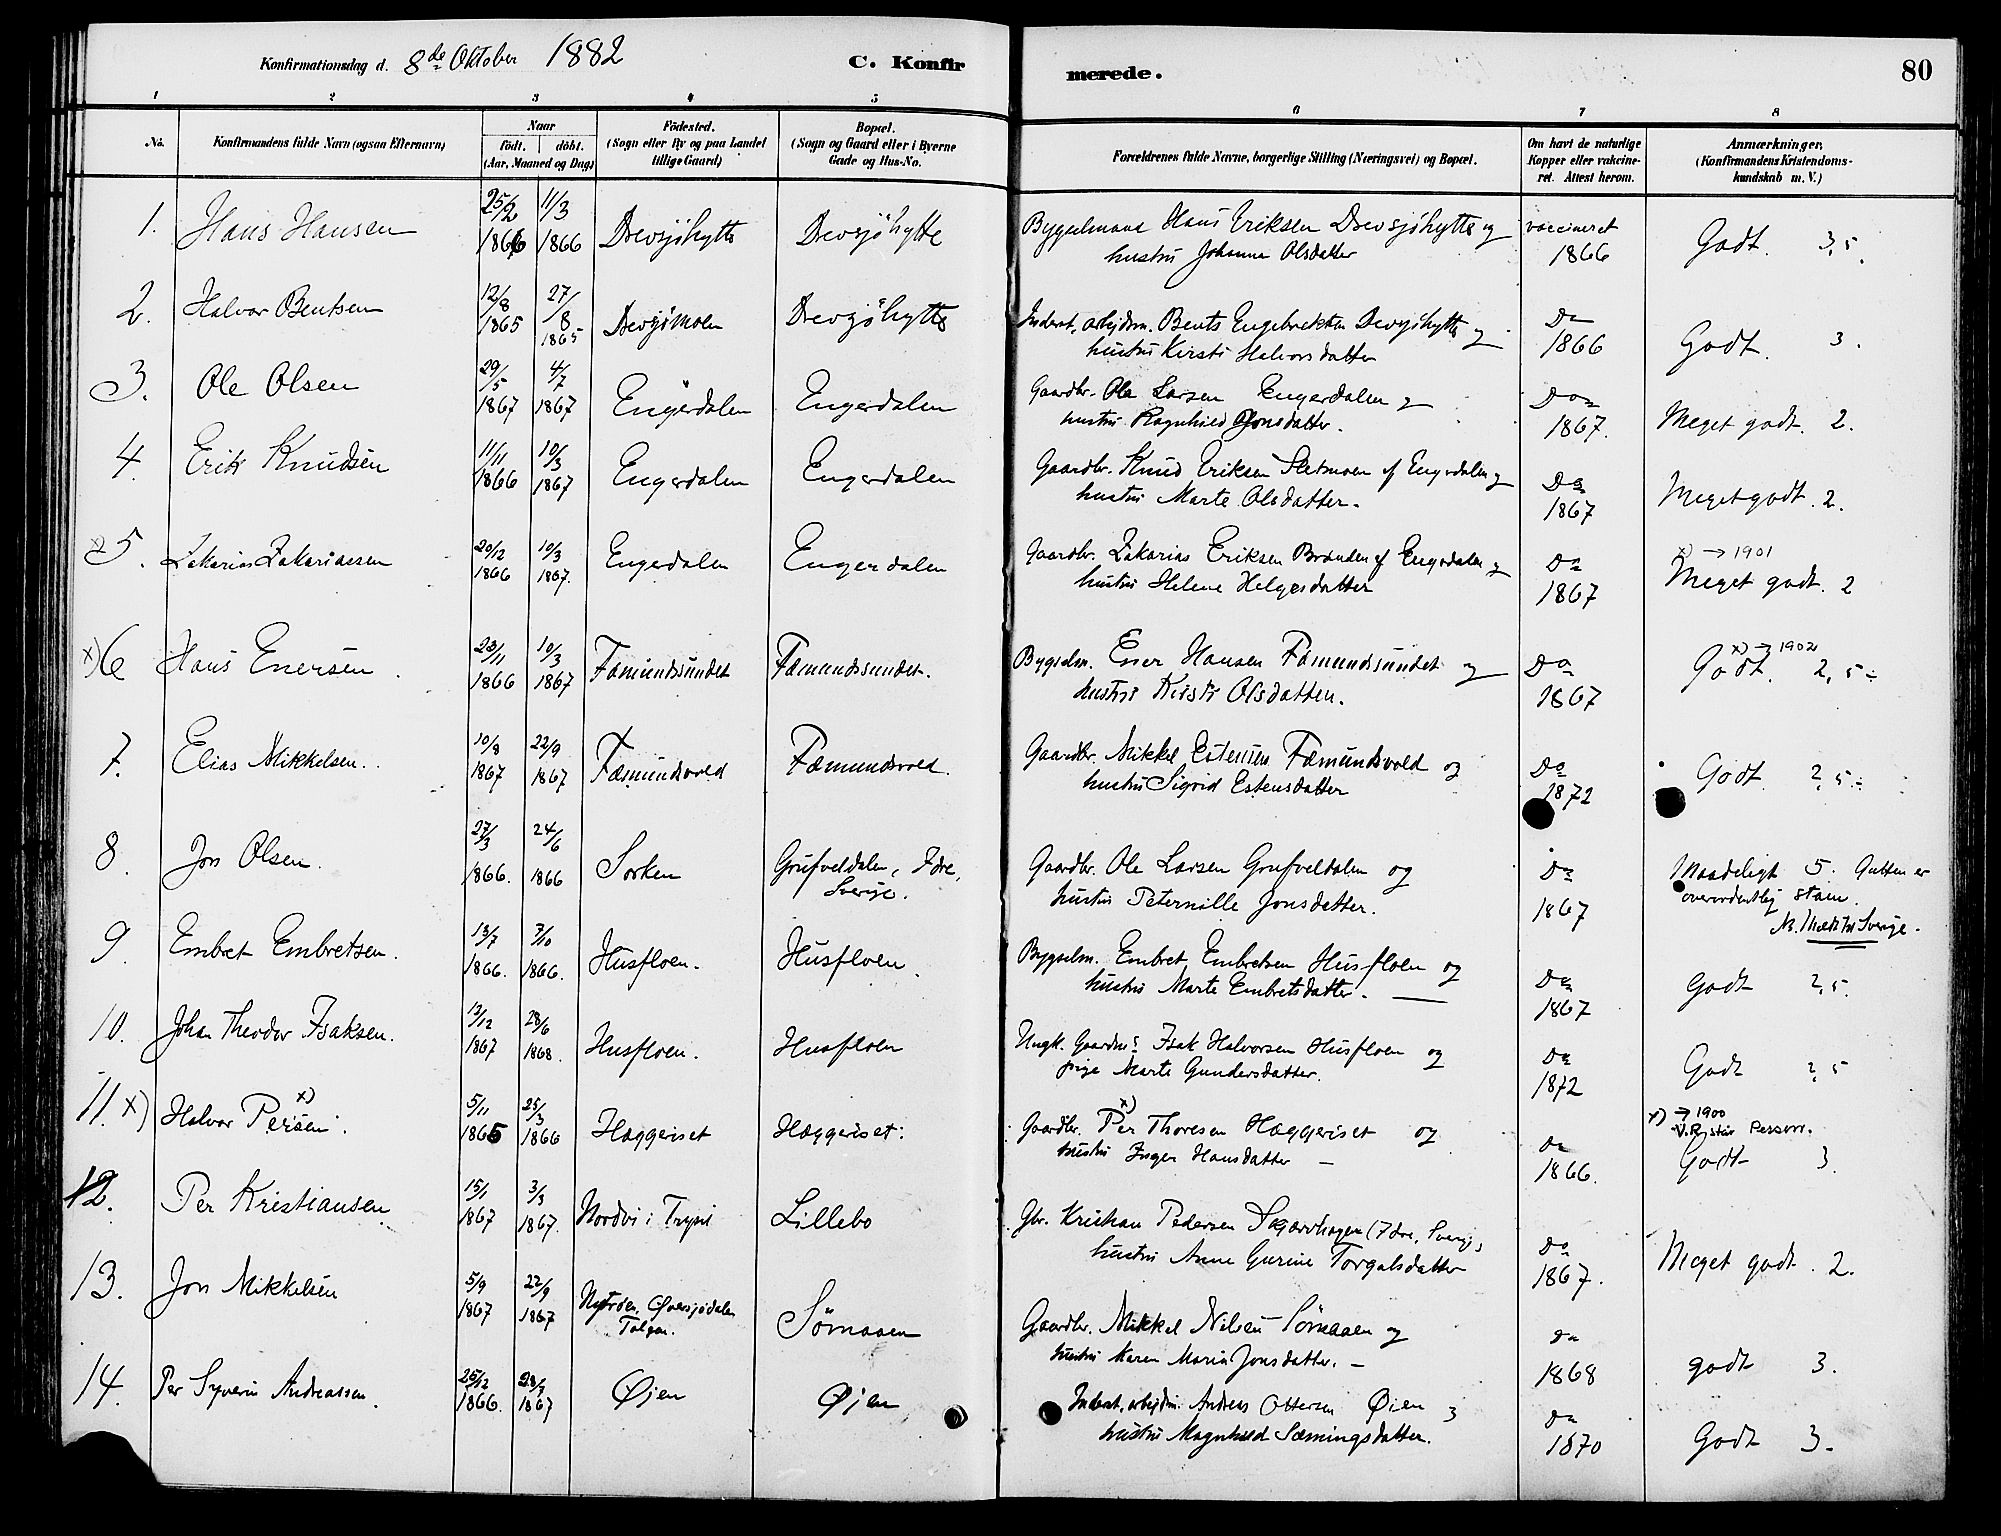 Konfirmationsdag d. 8de Oktober 1882 C. Konfirmerede. 80
1 2 3 4 5 6 7 8
No. Konfirmandens fulde Navn (ogsaa Efternavn) Naar født. døbt. (Aar, Maaned og Dag) Födested. (Sogn eller By og paa Landet tillige Gaard) Bopæl. (Sogn og Gaard eller i Byerne Gade og Hus-No. Forældrenes fulde Navne, borgerlige Stilling (Næringsvei) og Bopæl. Om havt de naturlige Kopper eller vakcineret. Attest herom. Anmærkninger. (Konfirmandens Kristendomskundskab m. V.)
1. Hans Hansen 25/2 1866 11/3 1866 Drevsjöhytte Drevsjöhytte Bygselmand Hans Eriksen Drevsjöhytte og vaccineret Godt. 3,5.
hustru Johanne Olsdatter 1866
2. Halvor Bentsen 12/8 1865 27/8 1865 Drevsjömoen Drevsjöhytte Inderst, arbejdsm. Bents Engebretsen Drevsjöhytte og Do
hustru Kirsti Halvorsdatter 1866 Godt. 3.
3. Ole Olsen 29/5 1867 4/7 1867 Engerdalen Engerdalen Gaardbr. Ole Larsen Engerdalen og Do
hustru Ragnhild Jonsdatter. 1867. Meget godt. 2.
4. Erik Knudsen 11/11 1866 10/3 1867 Engerdalen Engerdalen Gaardbr. Knud Eriksen Sletmoen af Engerdalen og Do
hustru Marte Olsdatter. 1867 Meget godt. 2.
x) 5. Zakarias Zakariassen 20/12 1866 10/3 1867. Engerdalen Engerdalen Gaardbr. Zakarias Eriksen Branden af Engerdalen og Do x) → 1901
hustru Helene Helgesdatter 1867 Meget godt. 2
x) 6 Hans Enersen. 23/11 1866 10/3 1867 Fæmundssundet Fæmundssundet. Bygselm. Ener Hansen Fæmundssundet og Do x) → 1902
hustru Kirsti Olsdatter. 1867 Godt. 2,5
7. Elias Mikkelsen. 10/8 1867 22/9 1867 Fæmundsvold Fæmundsvold. Gaardbr. Mikkel Estensen Fæmundsvold og Do
hustru Sigrid Estensdatter 1872 Godt 2,5
8. Jon Olsen. 27/3 1866. 24/6 1866 Sorken Grufveldalen, Idre, Sverige. Gaardbr. Ole Larsen Grufveldalen og Do Maadeligt 5. Gutten er
hustru Peternille Jonsdatter. 1867 overordentlig
Sverige.
9. Embret Embretsen. 13/7 1866. 7/10 1866. Husfloen. Husfloen. Bygselm. Embret Embretsen Husfloen og Do
hustru Marte Embretsdatter. 1867 Godt 2,5.
10. Johan Theodor Isaksen. 13/12 1867 28/6 1868. Husfloen. Husfloen Ungk. Gaardm. Isak Halvorsen Husfloen og Do
pige Marte Gundersdatter. 1872 Godt 2,5
11. x) Halvor Persen. x) 5/11 1865 25/3 1866 Hæggeriset Hæggeriset. Gaardbr. Per x) Thoresen Hæggeriset og Do x) → 1900
hustru Inger Hansdatter 1866. Godt 3.
12. Per Kristiansen 15/1 1867 3/3 1867. Nordvi i Trysil Lillebo Gbr. Kristian Pedersen (Idre, Sverige, Do
hustru Anne Gurine Torgalsdatter 1867. Meget godt. 2.
13. Jon Mikkelsen 5/9 1867 22/9 1867 Nytrøen, Øversjødalen Tolgen. Sømaaen Gaardbr. Mikkel Nilsen Sømaaen og Do
hustru Karen Maria Jonsdatter. 1868 godt 3.
14. Per Syverin Andreassen. 25/12 1866. 1867 Øien Øien Inderst, arbejdsm. Andreas Ottersen Øien og Do
hustru Magnhild Sæmingsdatter. 1870 Godt 3.